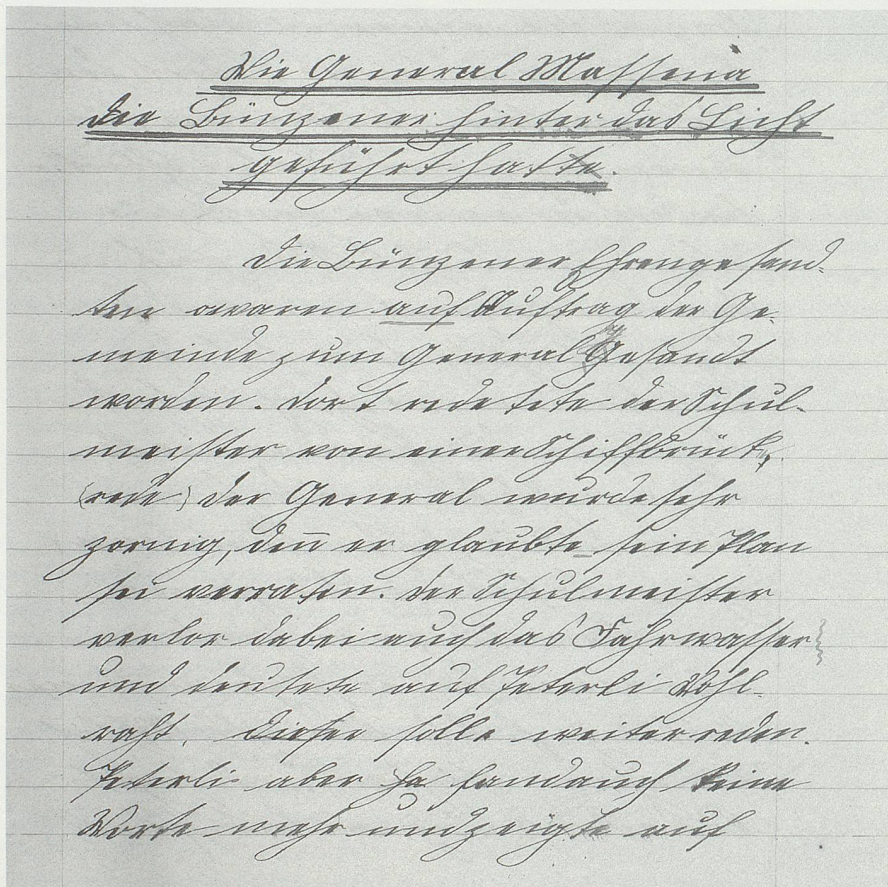 Wie General Massena
die Bünzener hinter das Licht
geführt hatte.
Die Bünzener Ehrengesand-
ten waren auf Auftrag der Ge-
meinde zum General Gesandt
worden. Dort redetete der Schul-
meister von einer Schiffbrück,
(rede) Der General wurde sehr
zornig, den̄ er glaubte sein Plan
sei verraten. Der Schulmeister
verlor dabei auch das Fahrwasser
und deutete auf Peterli Wohl-
raht. Dieser solle weiter reden.
Peterli aber fa fand auch keine
Worte mehr und zeigte auf